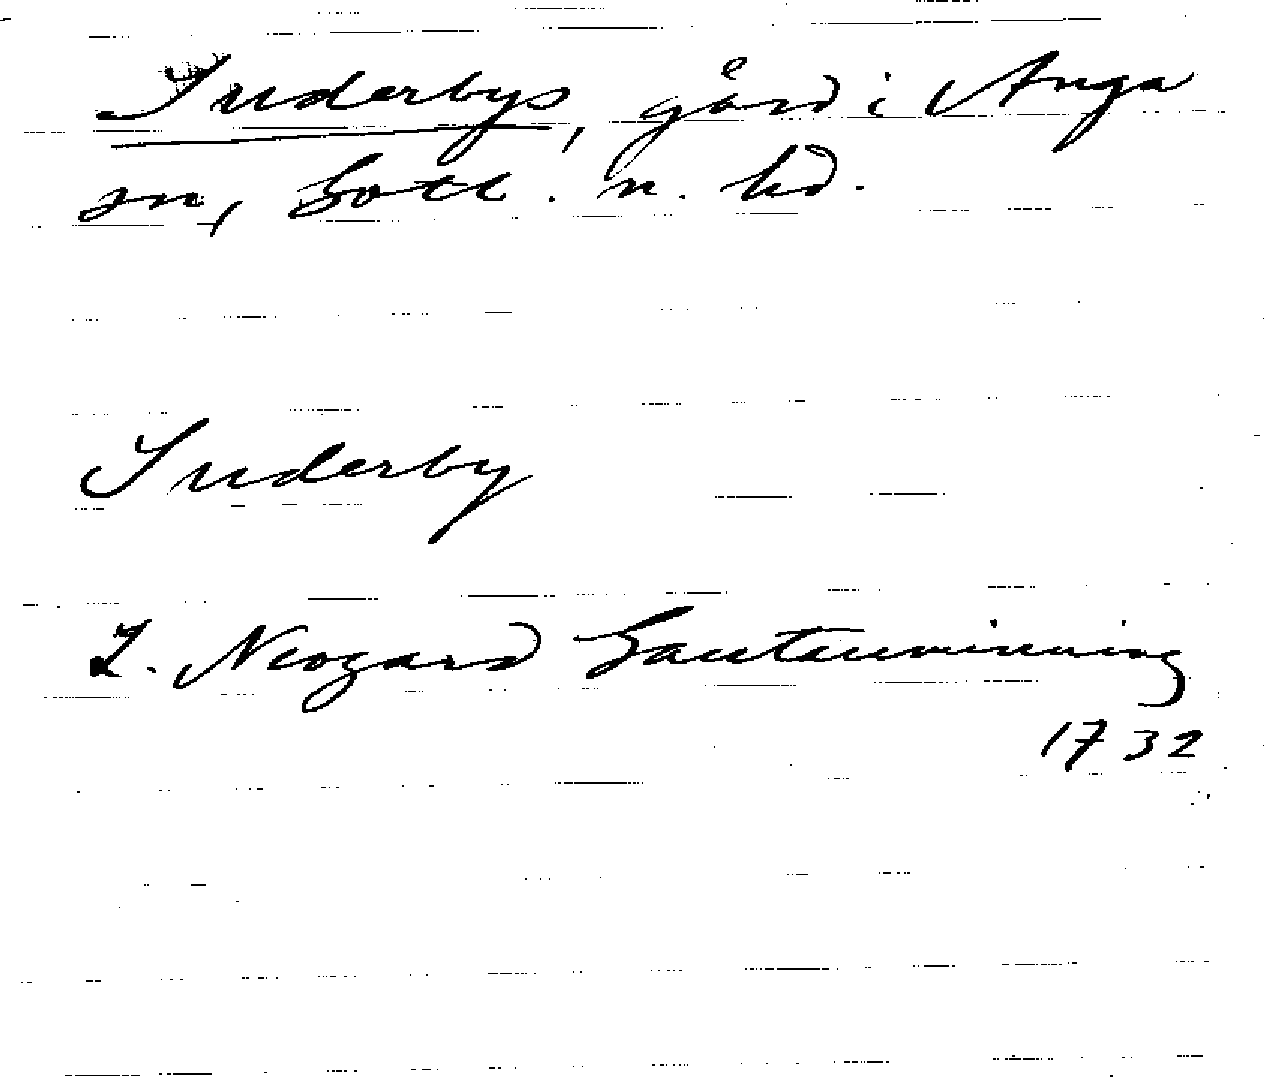 Inderbys, gård i Anga
sn, Gotl. n. hd.
Inderby
L. Neogard Gautauminning
1732